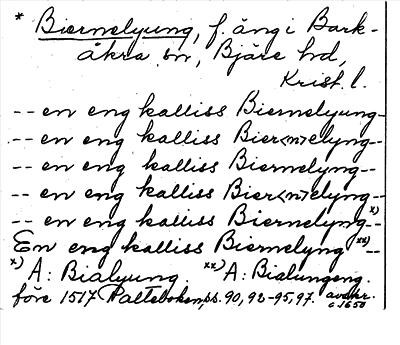 * Biernelyung, f. äng i Bark-
åkra sn, Bjäre hd,
Krist. l.
-- en eng kalliss Biernelyung--
-- en eng kalliss Bier<n>elyng--
-- en eng kalliss Biernelyng--
-- en eng kalliss Bier<n>elyng--
-- en eng kalliss Biernelyng-- x)
En eng kalliss Biernelyng xx) --
x) A: Bialyung. xx) A: Bialungeng.
före 1517 Palteboken, ss. 90, 92-95, 97. avskr. c. 1650